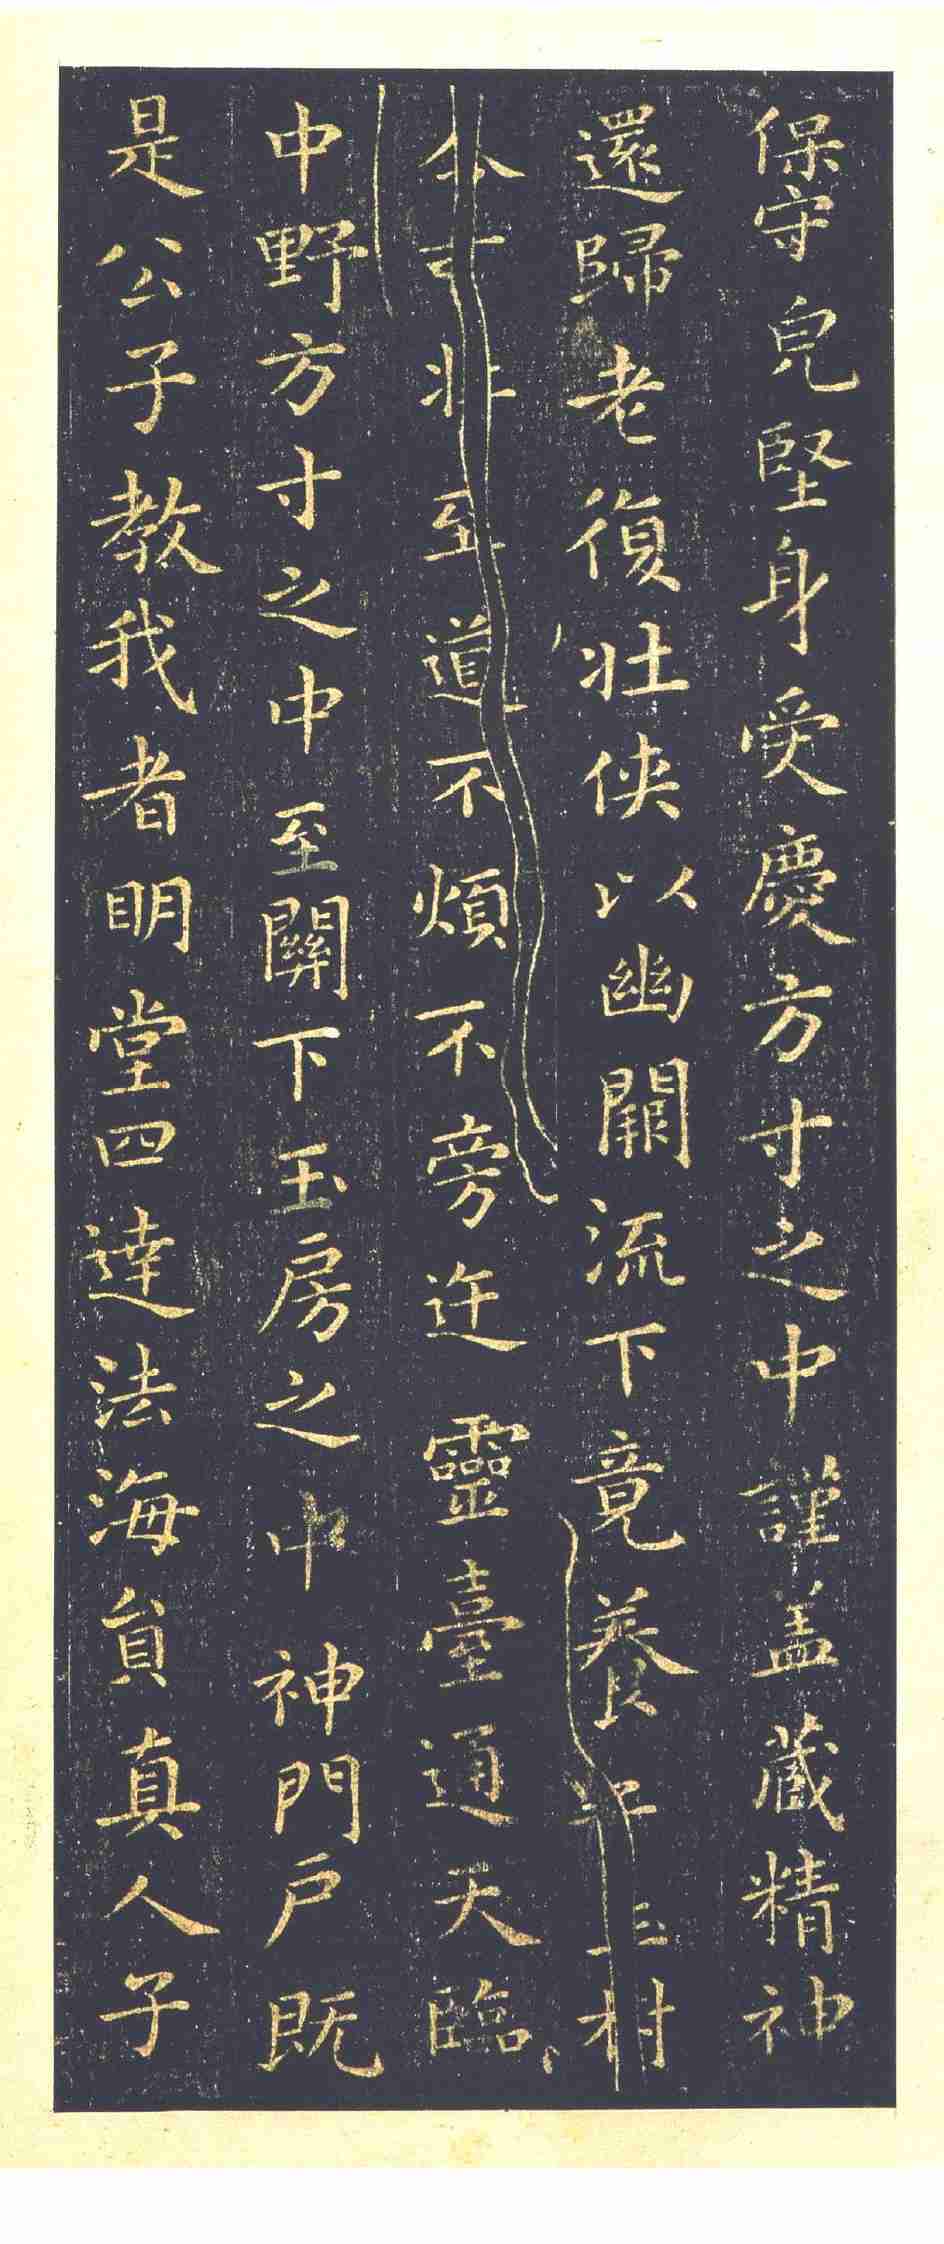 保守皃堅身受慶方寸之中謹盖藏精神
還歸老復壯俠以幽闕流下竟養
至道不煩不旁迕靈臺通天臨
中野方寸之中至關下玉房之中神門戶既
是公子教我者明堂四達法海負真人子